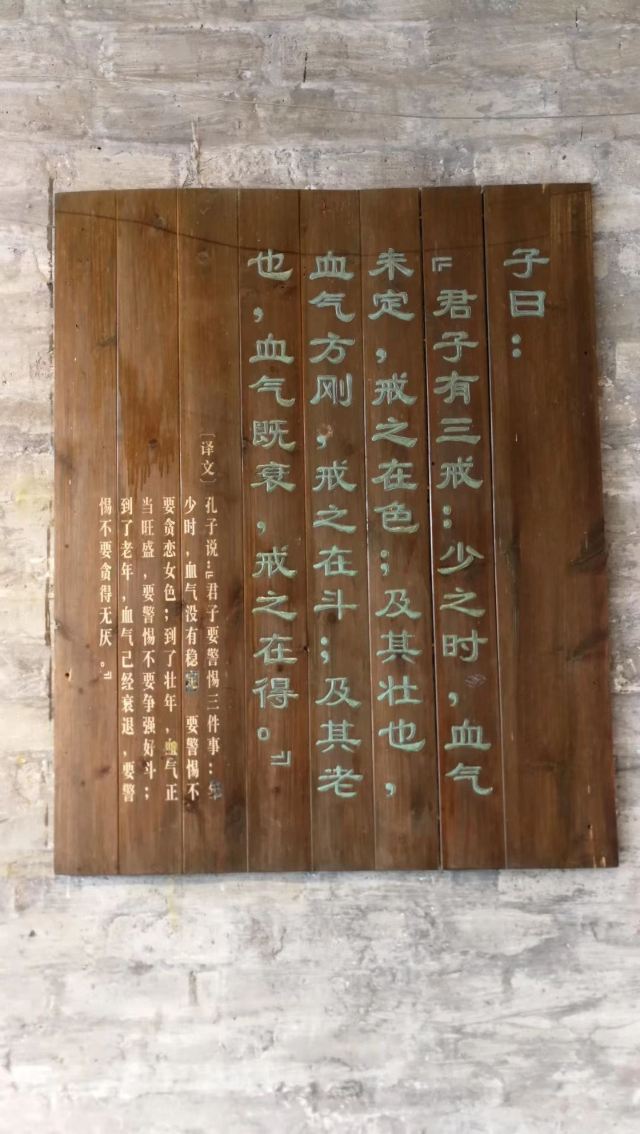 子曰：
『君子有三戒：少之时，血气
未定，戒之在色；及其壮也，
血气方刚，戒之在斗；及其老
也，血气既衰，戒之在得。』
〔译文〕孔子说：『君子要警惕三件事：年
少时，血气没有稳定 要警惕不
要贪恋女色；到了壮年，血气正
当旺盛，要警惕不要争强好斗；
到了老年，血气已经衰退，要警
惕不要贪得无厌。』